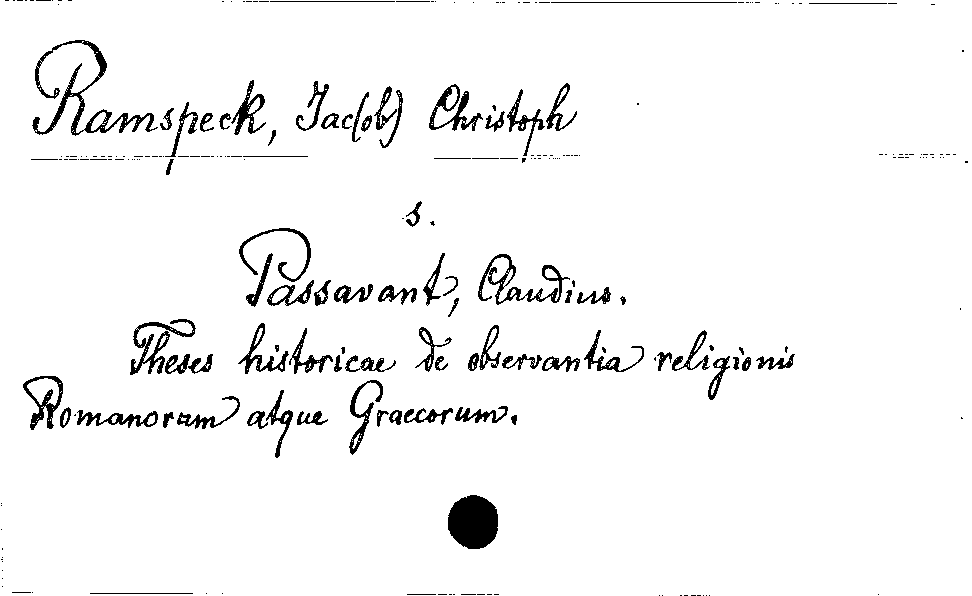 Ramspeck, Jac(ob) Christoph
s.
Passavant, Claudius.
Theses historicae de observantia religionis
Romanorum atque Graecorum.